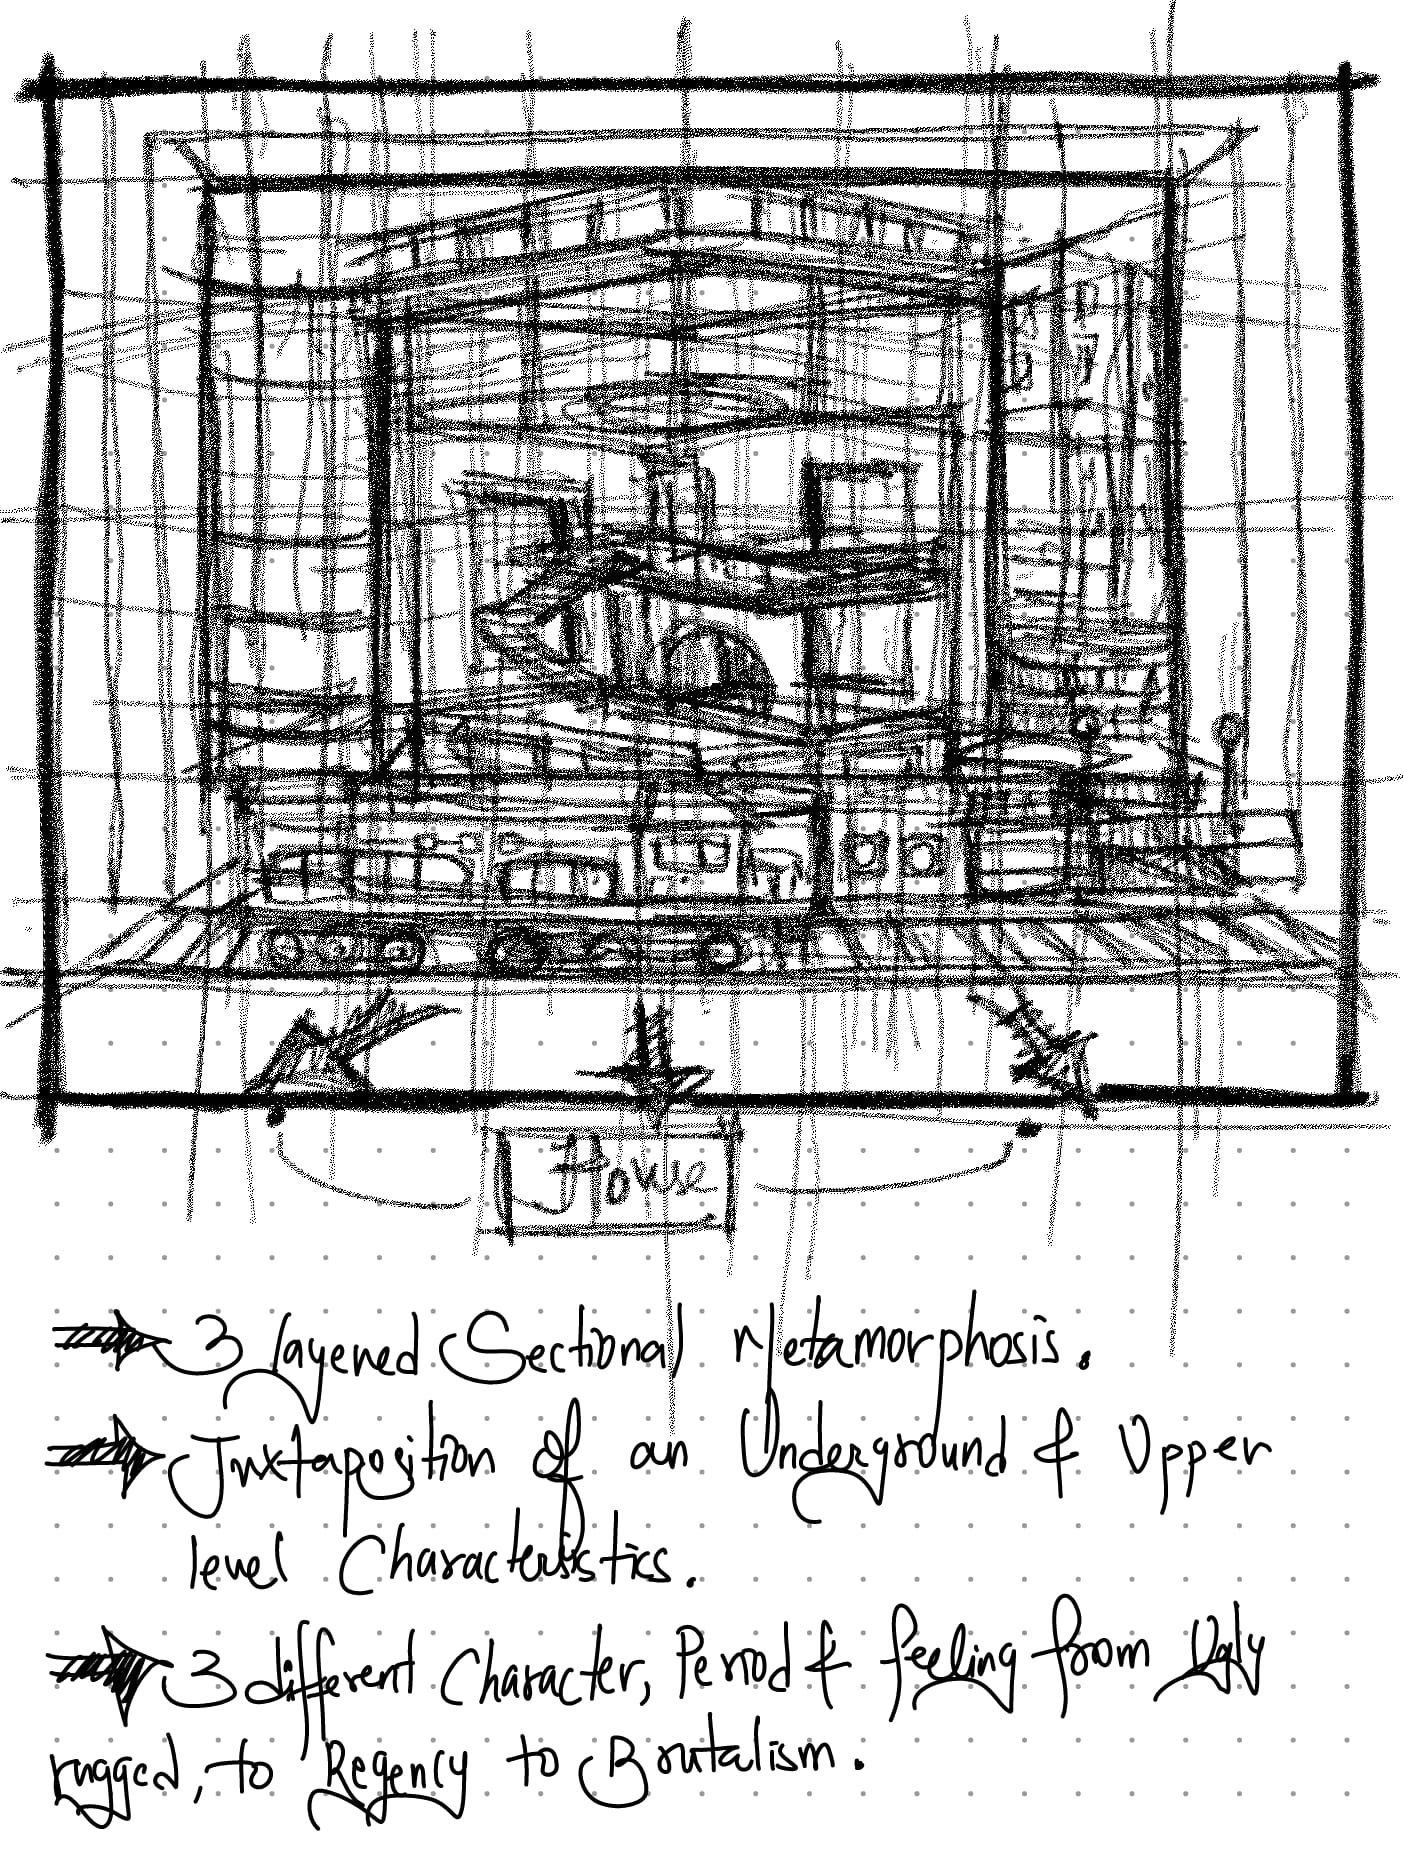 House
3 layered Sectional Metamorphosis.
Juxtaposition of an Underground & Upper
level Characteristics.
3 different Character, Period & feeling from Ugly
rugged, to Regency to Brutalism.